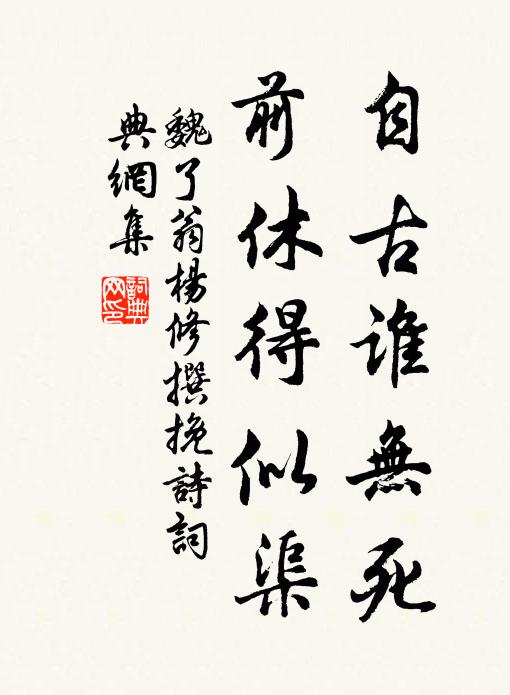 自古谁無死
前休得似渠
魏了翁楊修撰挽詩詞
典網集
詞典
网印